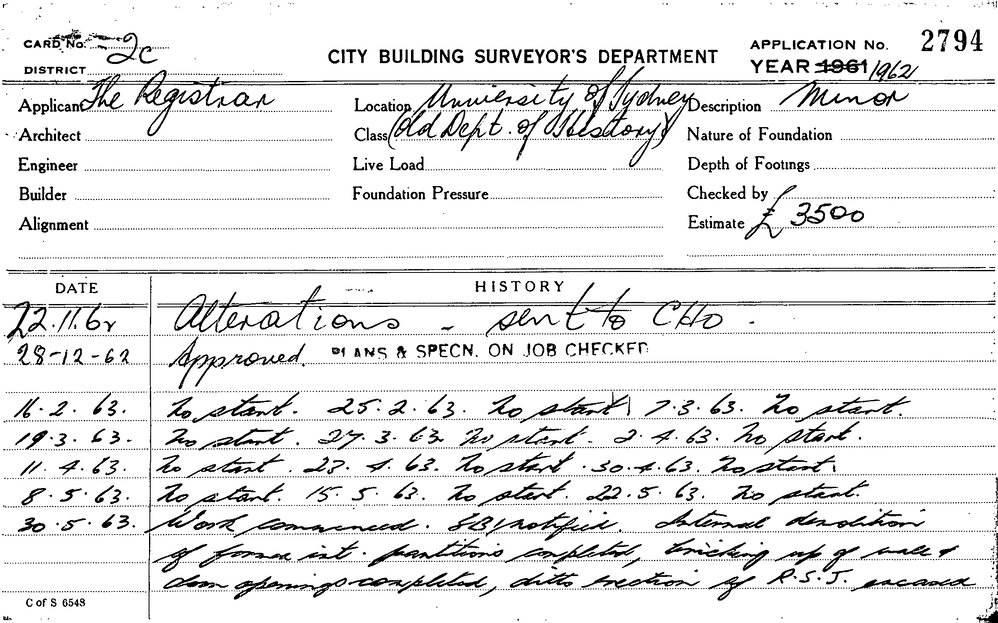 CARD No. 2c
DISTRICT
CITY BUILDING SURVEYOR'S DEPARTMENT
APPLICATION No. 2794
YEAR 1961 1962
Applicant The Registrar
Location University of Sydney
Description Minor
Architect
Class (Old Dept. of History)
Nature of Foundation
Engineer
Live Load
Depth of Footings
Builder
Foundation Pressure
Checked by
Alignment
Estimate £ 3500
DATE HISTORY
22.11.62 Alterations - sent to CHO.
28-12-62 Approved. PLANS & SPECN. ON JOB CHECKED
16.2.63. No start. 25.2.63. No start 7.3.63. No start.
19.3.63. No start. 27.3.63. No start. 2.4.63. No start.
11.4.63. No start. 23.4.63. No start. 30.4.63. No start.
8.5.63. No start. 15.5.63. No start. 22.5.63. No start.
30.5.63. Work commenced. notified. Internal demolition
of former int. partitions completed, bricking up of wall &
door openings completed, ditto erection of R.S.J. encased
C of S 6548